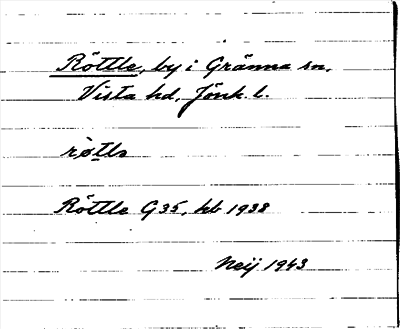 Röttle, by i Gränna sn,
Vista hd, Jönk. l.
røtlə
Röttle G35, kb 1938
Neij 1943